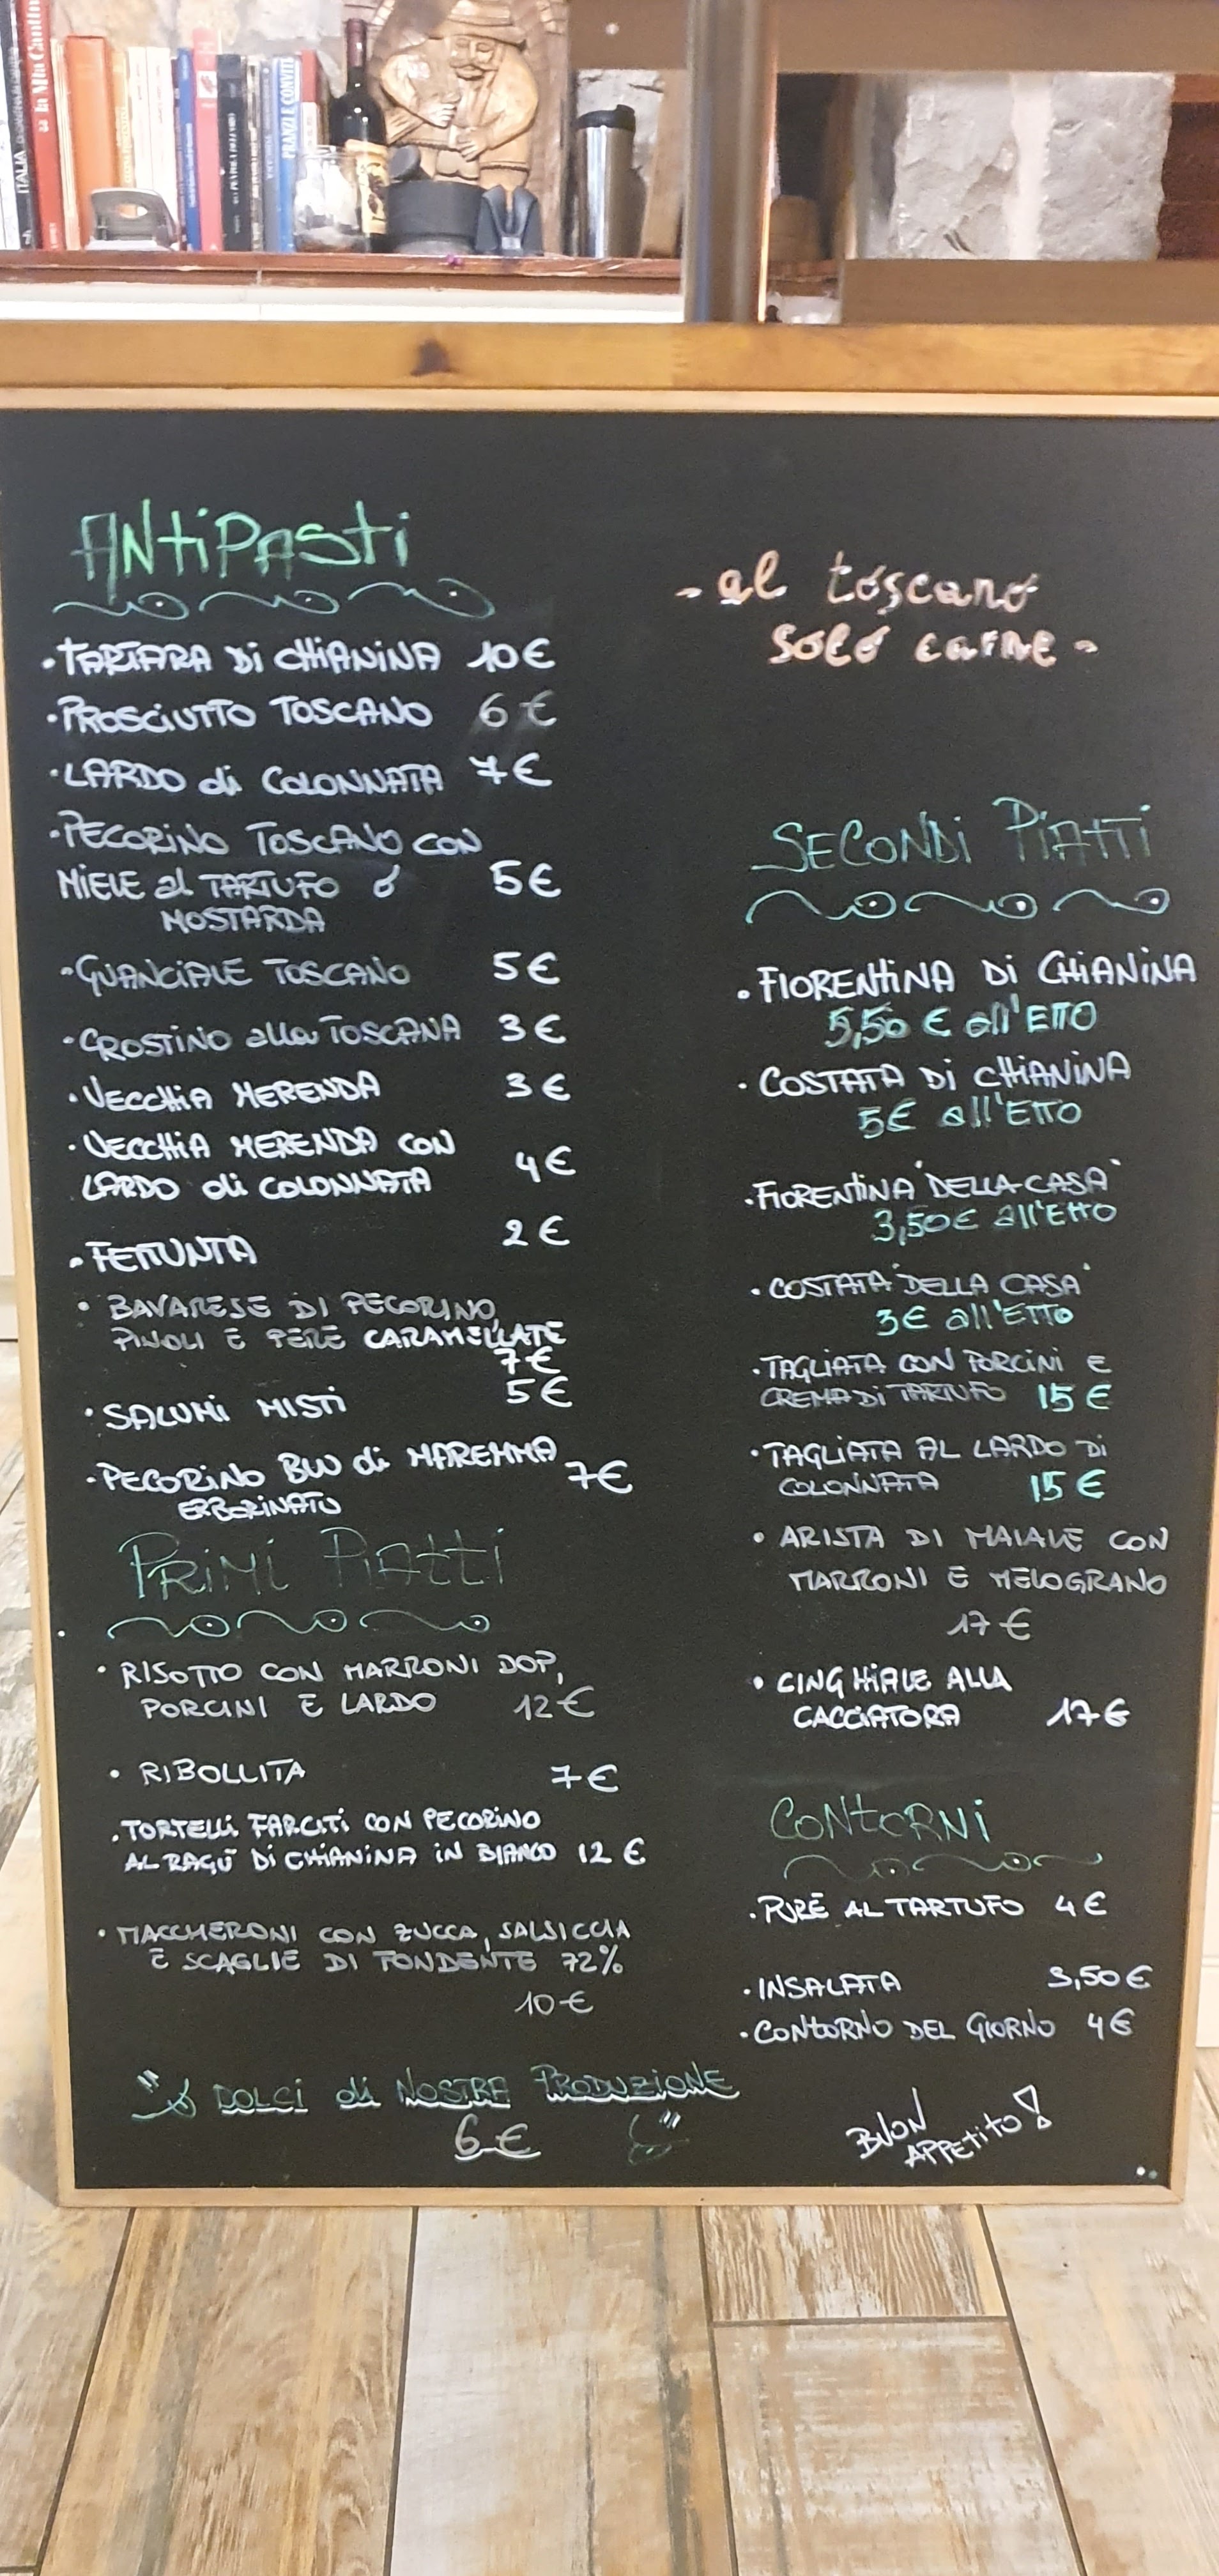 ITALIA
la Mia Cucina
PRANZI E CONVITI
ANTIPASTI
• TARTARA Di CHIANINA 10€
• PROSCIUTTO TOSCANO 6€
• LARDO di COLONNATA 7€
• PECORINO TOSCANO CON
MIELE al TARTUFO o 5€
MOSTARDA
• GUANCIALE TOSCANO 5€
• CROSTINO alla TOSCANA 3€
• VECCHIA MERENDA 3€
• VECCHIA MERENDA CON
LARDO di COLONNATA 4€
• FETTUNTA 2€
• BAVARESE DI PECORINO,
PINOLI E PERE CARAMELLATE
7€
• SALUMI MISTI 5€
• PECORINO BLU di MAREMMA 7€
ERBORINATO
PRIMI PIATTI
• RISOTTO CON MARRONI DOP,
PORCINI E LARDO 12€
• RIBOLLITA 7€
• TORTELLI FARCITI CON PECORINO
AL RAGÙ DI CHIANINA IN BIANCO 12€
• MACCHERONI CON ZUCCA, SALSICCIA
E SCAGLIE DI FONDENTE 72%
10€
DOLCI di NOSTRA PRODUZIONE
6€
- al toscano
solo carne -
SECONDI PIATTI
• FIORENTINA Di CHIANINA
5,50 € all'ETTO
• COSTATA Di CHIANINA
5€ all'ETTO
• FIORENTINA "DELLA CASA"
3,50€ all'ETTO
• COSTATA "DELLA CASA"
3€ all'ETTO
• TAGLIATA CON PORCINI E
CREMA DI TARTUFO 15€
• TAGLIATA AL LARDO DI
COLONNATA 15€
• ARISTA DI MAIALE CON
MARRONI E MELOGRANO
17€
• CINGHIALE ALLA
CACCIATORA 17€
CONTORNI
• PURÈ AL TARTUFO 4€
• INSALATA 3,50€
• CONTORNO DEL GIORNO 4€
BUON
APPETITO!